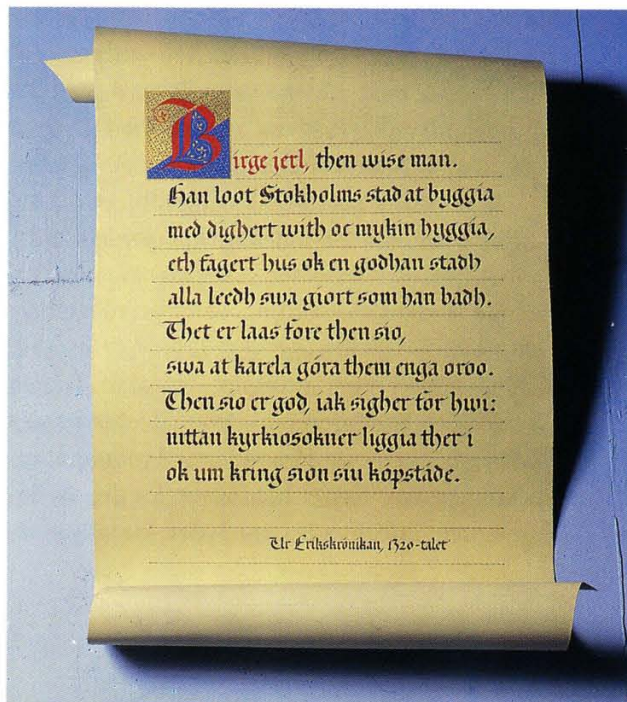 Birge jerl, then wise man.
Han loot Stokholms stad at byggia
med dighert with oc mykin hyggia,
eth fagert hus ok en godhan stadh
alla leedh swa giort som han badh.
Thet er laas fore then sio,
swa at karela góra them enga oroo.
Then sio er god, iak sigher for hwi:
nittan kyrkiosokner liggia ther i
ok um kring sion siu kópstáde.
Ur Erikskrónikan, 1320-talet